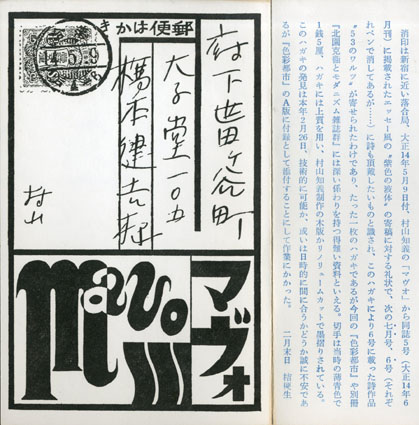 郵便はかき
14.5.9
府下世田ヶ谷町
太子堂一〇五
橋本健吉様
村山
マヴォ
MAVO
消印は新宿に近い落合局、大正14年5月9日付、村山知義の『マヴォ』から同誌5号(大正14年6
月刊)に掲載されたエッセー風の“紫色の液体”の寄稿に対する礼状で、次の七月号、6号(それぞ
れペンで消してあるが……)に詩も頂戴したいものと識され、このハガキにより6号に載った詩作品
“53のワルツ”が寄せられたわけであり、たった一枚のハガキであるが今回の『色彩都市』や別冊
『北園克衛とモダニズム雑誌群』には深い係わりを持つ得難い資料といえる。切手は当時の薄青色で
1銭5厘、ハガキには上質を用い、村山知義制作の木版かリノリュームカットで墨摺りされている。
このハガキの発見は本年2月26日、技術的に可能か、或いは日時的に間に合うかどうか誠に不安であ
るが『色彩都市』のA版に付録として添付することにして作業にかかった。 二月末日